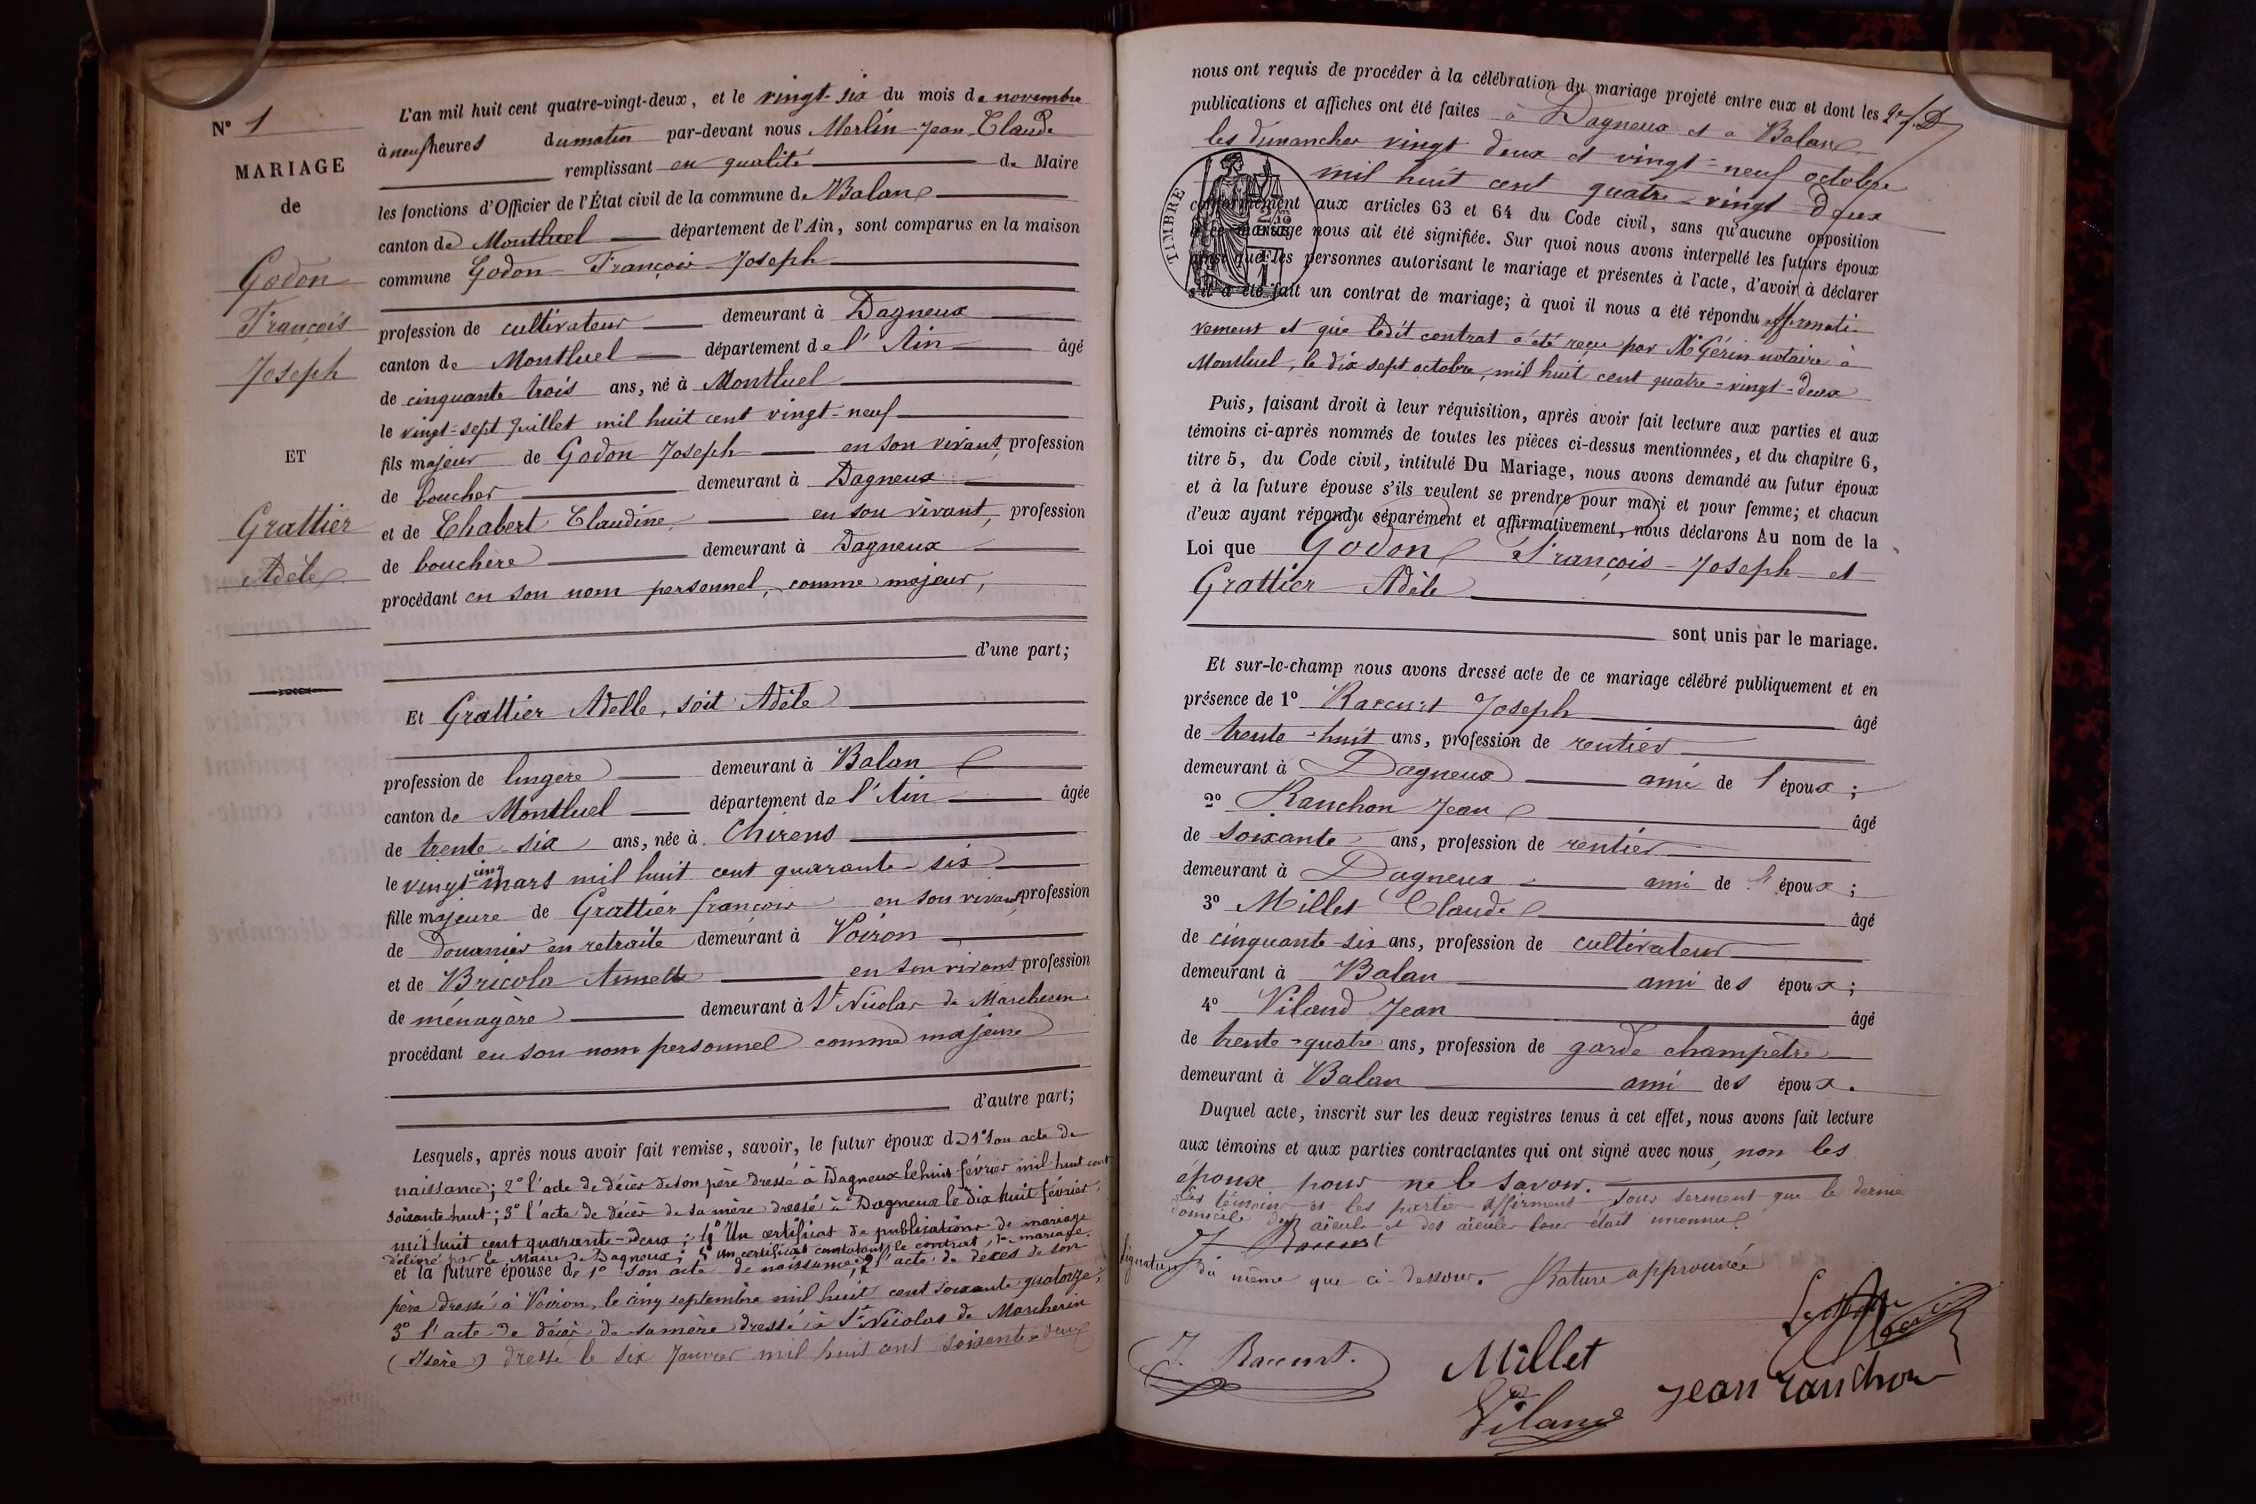 N° 1
MARIAGE
de
Godon
François
Joseph
ET
Grattier
Adèle
L'an mil huit cent quatre-vingt-deux, et le vingt-six du mois de novembre
à neuf heures du matin par-devant nous Merlin Jean Claude
remplissant en qualité de Maire
les fonctions d'Officier de l'État civil de la commune de Balan
canton de Montluel département de l'Ain, sont comparus en la maison
commune Godon François Joseph
profession de cultivateur demeurant à Dagneux
canton de Montluel département de l'Ain âgé
de cinquante trois ans, né à Montluel
le vingt-sept Juillet mil huit cent vingt-neuf
fils majeur de Godon Joseph en son vivant, profession
de boucher demeurant à Dagneux
et de Chabert Claudine, en son vivant, profession
de bouchère demeurant à Dagneux
procédant en son nom personnel, comme majeur,
d'une part;
Et Grattier Adelle, soit Adèle
profession de lingère demeurant à Balan
canton de Montluel département de l'Ain âgée
de trente six ans, née à Chirens
le vingt-cinq mars mil huit cent quarante-six
fille majeure de Grattier françois en son vivant, profession
de douanier en retraite demeurant à Voiron
et de Bricola Annette en son vivant profession
de ménagère demeurant à St Nicolas de Marcherin
procédant en son nom personnel comme majeure
d'autre part;
Lesquels, après nous avoir fait remise, savoir, le futur époux de 1° son acte de
naissance; 2° l'acte de décès de son père dressé à Dagneux le huit février mil huit cent
soixante huit; 3° l'acte de décès de sa mère dressé à Dagneux le dix huit février
mil huit cent quarante-deux; 4° Un certificat de publications de mariage
délivré par le Maire de Dagneux; 5° un certificat constatant le contrat de mariage.
et la future épouse de 1° son acte de naissance; 2° l'acte de décès de son
père dressé à Voiron, le cinq septembre mil huit cent soixante quatorze;
3° l'acte de décès de sa mère dressé à St Nicolas de Marcherin
(Isère) dressé le six Janvier mil huit cent soixante-deux
nous ont requis de procéder à la célébration du mariage projeté entre eux et dont les
publications et affiches ont été faites à Dagneux et à Balan
les dimanches vingt deux et vingt-neuf octobre
mil huit cent quatre-vingt deux
TIMBRE
conformément aux articles 63 et 64 du Code civil, sans qu'aucune opposition
à ce mariage nous ait été signifiée. Sur quoi nous avons interpellé les futurs époux
ainsi que les personnes autorisant le mariage et présentes à l'acte, d'avoir à déclarer
s'il a été fait un contrat de mariage; à quoi il nous a été répondu affirmati-
vement et que ledit contrat a été reçu par Me Gérin notaire à
Montluel, le dix sept octobre, mil huit cent quatre-vingt-deux
Puis, faisant droit à leur réquisition, après avoir fait lecture aux parties et aux
témoins ci-après nommés de toutes les pièces ci-dessus mentionnées, et du chapitre 6,
titre 5, du Code civil, intitulé Du Mariage, nous avons demandé au futur époux
et à la future épouse s'ils veulent se prendre pour mari et pour femme; et chacun
d'eux ayant répondu séparément et affirmativement, nous déclarons Au nom de la
Loi que Godon François-Joseph et
Grattier Adèle
sont unis par le mariage.
Et sur-le-champ nous avons dressé acte de ce mariage célébré publiquement et en
présence de 1° Raccurt Joseph âgé
de trente-huit ans, profession de rentier
demeurant à Dagneux ami de l'époux;
2° Ranchon Jean âgé
de soixante ans, profession de rentier
demeurant à Dagneux ami de l'époux;
3° Millet Claude âgé
de cinquante-six ans, profession de cultivateur
demeurant à Balan ami des époux;
4° Viland Jean âgé
de trente-quatre ans, profession de garde champêtre
demeurant à Balan ami des époux.
Duquel acte, inscrit sur les deux registres tenus à cet effet, nous avons fait lecture
aux témoins et aux parties contractantes qui ont signé avec nous, non les
époux pour ne le savoir.
Les témoins et les parties affirment sous serment que le dernier
domicile des aïeuls et des aïeules leur était inconnu.
J Raccurt
Signature du même que ci-dessous. Rature approuvée
J. Raccurt.
Millet
Jean Ranchon
Viland